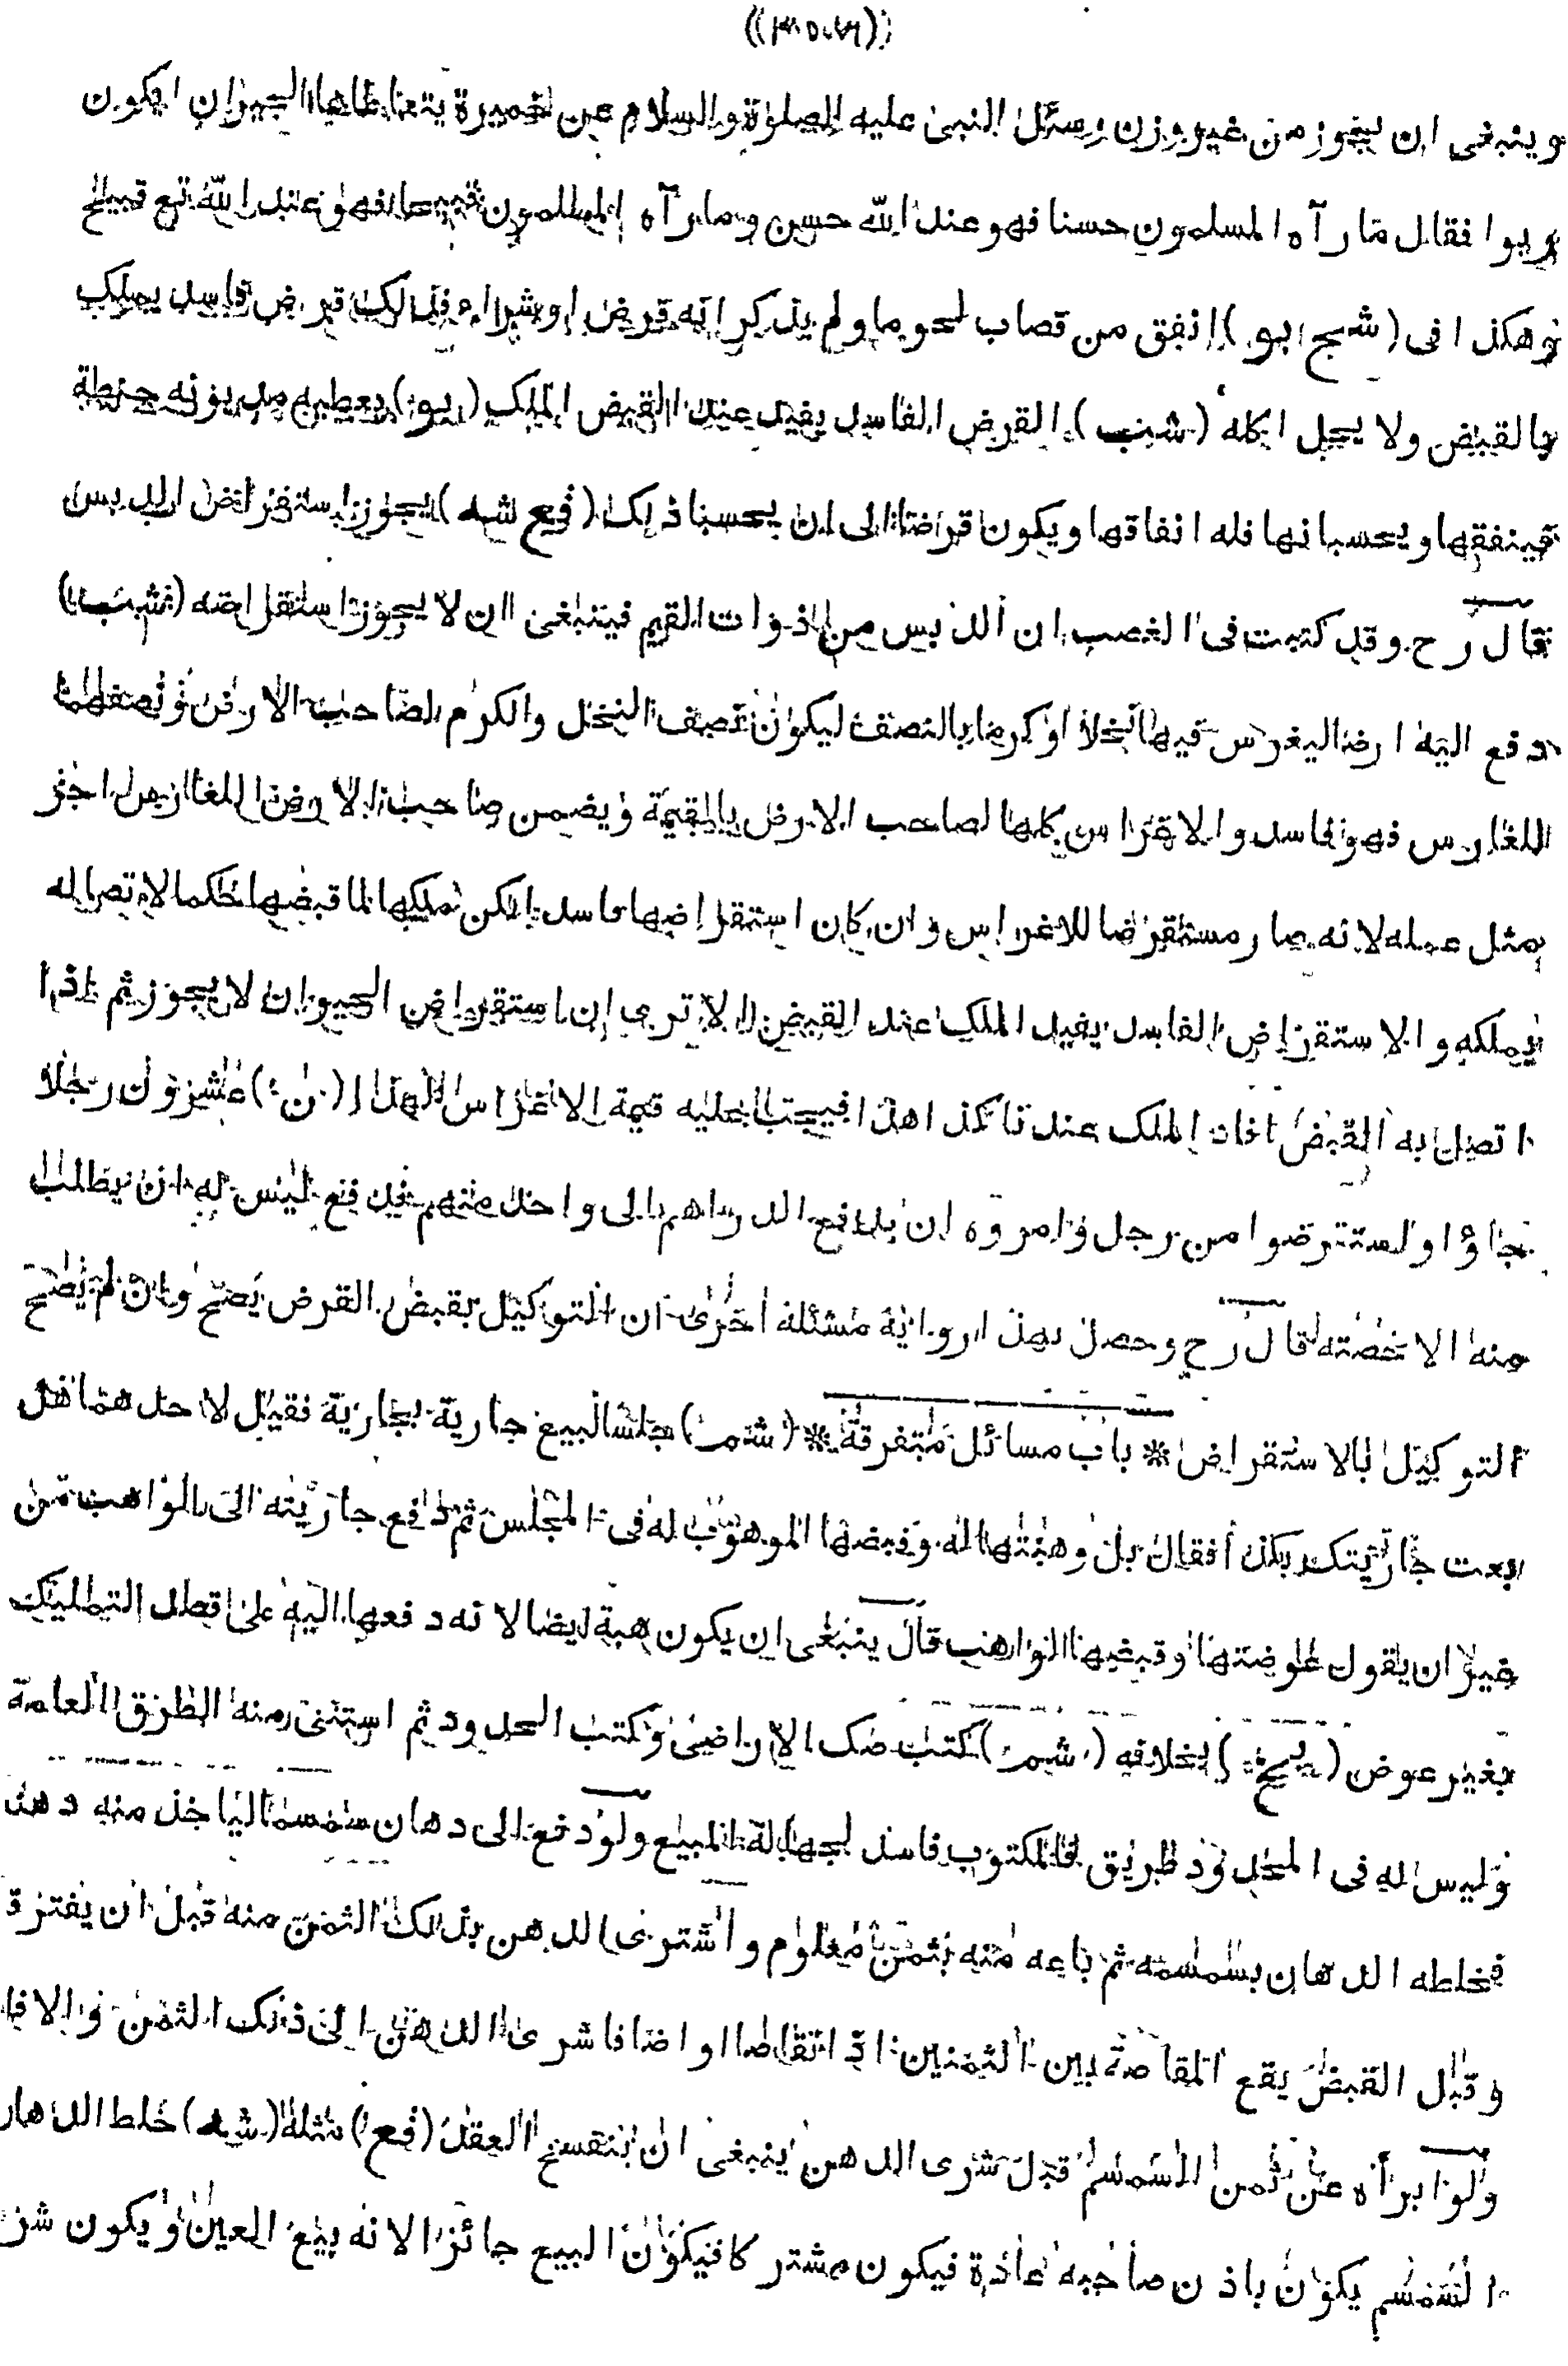 وينبغى ان يجوز من غير وزن وسئل النبى عليه الصلوة والسلام عن خميرة يتعاطاها الجيران ايكون
ربوا فقال ما رآه المسلمون حسنا فهو عند الله حسن وما رآه المسلمون قبيحا فهو عند الله تع قبيح
وهكذا فى (شيح بو) انفق من قصاب لحوما ولم يذكر انه قرض او شراء فذلك قرض فاسد يملك
بالقبض ولا يحل اكله (شب) القرض الفاسد يفيد عند القبض الملك (بو) يعطيه مديونه حنطة
فينفقها ويحسبانها فله انفاقها ويكون قرضا الى ان يحسبا ذلك (فع شه) يجوز استقراض الدبس
قال رح وقد كتبت فى الغصب ان الدبس من ذوات القيم فينبغى ان لا يجوز استقراضه (شب)
دفع اليه ارضا ليغرس فيها نخلا او كرما بالنصف ليكون نصف النخل والكرم لصاحب الارض ونصفها
للغارس فهو فاسد والاغراس كلها لصاحب الارض بالقيمة ويضمن صاحب الارض للغارس اجر
مثل عمله لانه صار مستقرضا للاغراس وان كان استقراضها فاسدا لكن تملكها لما قبضها حكما لاتصاله
بملكه والاستقراض الفاسد يفيد الملك عند القبض الا ترى ان استقراض الحيوان لا يجوز ثم اذا
اتصل به القبض افاد الملك عندنا كذا هذا فيجب عليه قيمة الاغراس لهذا (ن) عشرون رجلا
جاؤا واستقرضوا من رجل وامروه ان يدفع الدراهم الى واحد منهم فدفع ليس له ان يطالب
منه الا حصته قال رح وحصل بهذا رواية مسئلة اخرى ان التوكيل بقبض القرض يصح وان لم يصح
التوكيل بالاستقراض * باب مسائل متفرقة * (شم) جلسا لبيع جارية بجارية فقيل لاحدهما هل
بعت جاريتك بكذا فقال بل وهبتها له وقبضها الموهوب له فى المجلس ثم دفع جاريته الى الواهب من
غير ان يقول عوضتها وقبضها الواهب قال ينبغى ان يكون هبة ايضا لانه دفعها اليه على قصد التمليك
بغير عوض (بخ) بخلافه (شم) كتب صك الاراضى وكتب الحدود ثم استثنى منه الطرق العامة
وليس له فى المحدود طريق فالمكتوب فاسد لجهالة المبيع ولو دفع الى دهان سمسما لياخذ منه دهنا
فخلطه الدهان بسمسمه ثم باعه منه بثمن معلوم واشترى الدهن بذلك الثمن منه قبل ان يفترقا
وقبل القبض يقع المقاصة بين الثمنين اذا تقاصا او اضافا شرى الدهن الى ذلك الثمن والا فلا
ولو ابرأه عن ثمن السمسم قبل شرى الدهن ينبغى ان ينفسخ العقد (فع) مثله (شه) خلط الدهان
السمسم يكون باذن صاحبه عادة فيكون مشتركا فيكون البيع جائزا لانه بيع العين ويكون